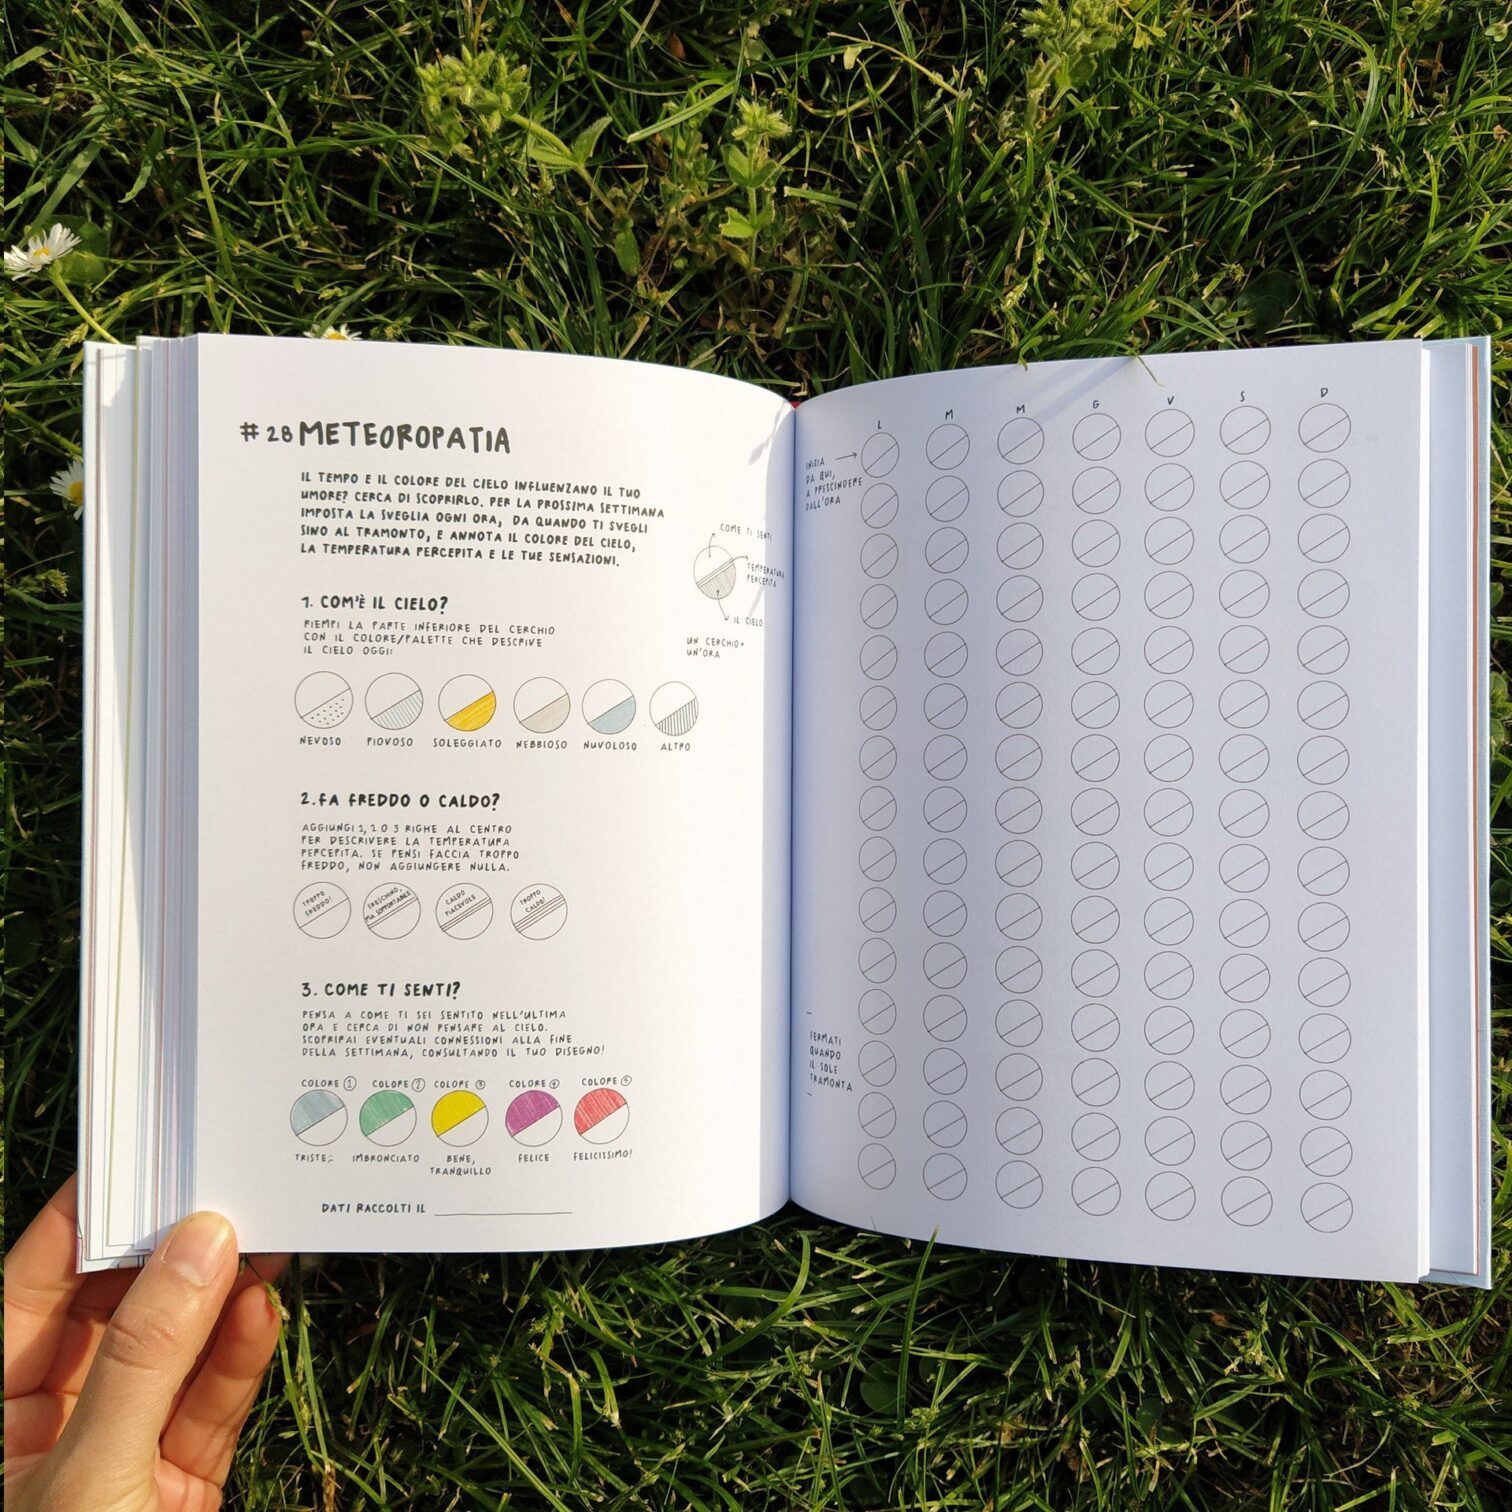 #28 METEOROPATIA
IL TEMPO E IL COLORE DEL CIELO INFLUENZANO IL TUO
UMORE? CERCA DI SCOPRIRLO. PER LA PROSSIMA SETTIMANA
IMPOSTA LA SVEGLIA OGNI ORA, DA QUANDO TI SVEGLI
SINO AL TRAMONTO, E ANNOTA IL COLORE DEL CIELO,
LA TEMPERATURA PERCEPITA E LE TUE SENSAZIONI.
COME TI SENTI
TEMPERATURA
PERCEPITA
IL CIELO
UN CERCHIO =
UN'ORA
1. COM'È IL CIELO?
RIEMPI LA PARTE INFERIORE DEL CERCHIO
CON IL COLORE/PALETTE CHE DESCRIVE
IL CIELO OGGI:
NEVOSO PIOVOSO SOLEGGIATO NEBBIOSO NUVOLOSO ALTRO
2. FA FREDDO O CALDO?
AGGIUNGI 1, 2 O 3 RIGHE AL CENTRO
PER DESCRIVERE LA TEMPERATURA
PERCEPITA. SE PENSI FACCIA TROPPO
FREDDO, NON AGGIUNGERE NULLA.
TROPPO
FREDDO!
FRESCHINO,
MA SOPPORTABILE
CALDO
PIACEVOLE
TROPPO
CALDO!
3. COME TI SENTI?
PENSA A COME TI SEI SENTITO NELL'ULTIMA
ORA E CERCA DI NON PENSARE AL CIELO.
SCOPRIRAI EVENTUALI CONNESSIONI ALLA FINE
DELLA SETTIMANA, CONSULTANDO IL TUO DISEGNO!
COLORE 1 COLORE 2 COLORE 3 COLORE 4 COLORE 5
TRISTE IMBRONCIATO BENE, FELICE FELICISSIMO!
TRANQUILLO
DATI RACCOLTI IL
L M M G V S D
INIZIA
DA QUI,
A PRESCINDERE
DALL'ORA
FERMATI
QUANDO
IL SOLE
TRAMONTA